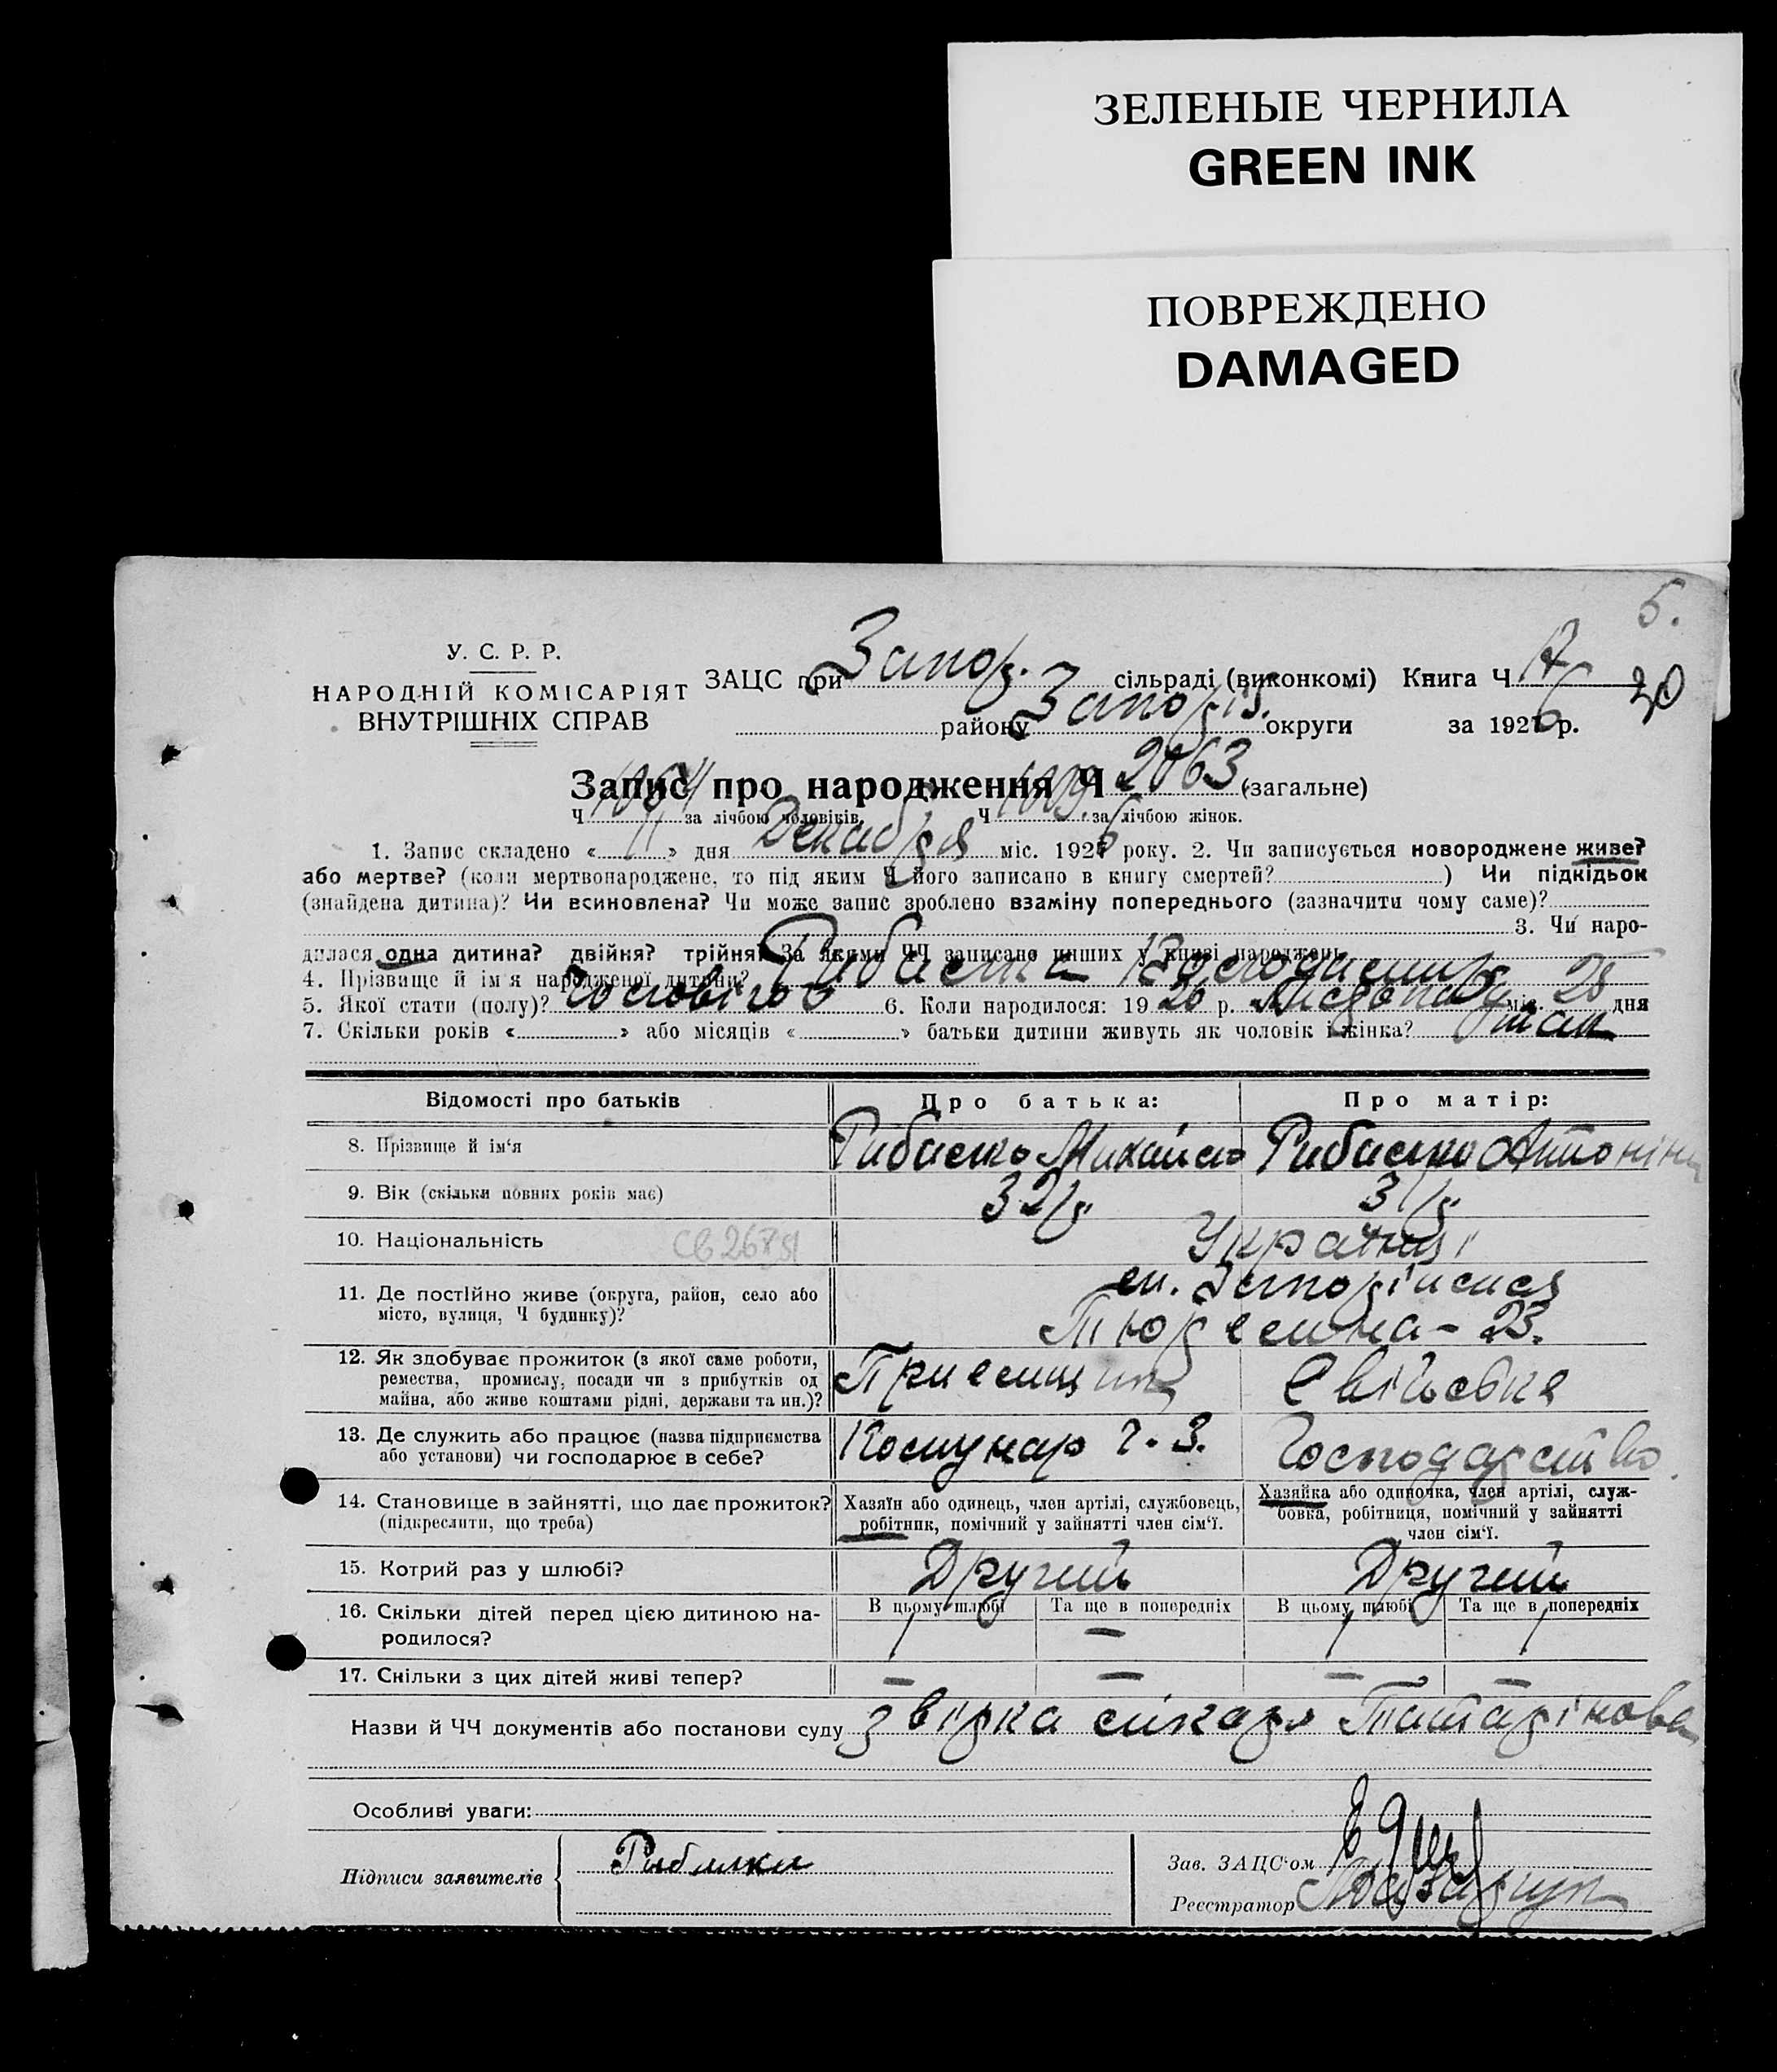 ЗЕЛЕНЫЕ ЧЕРНИЛА
GREEN INK
ПОВРЕЖДЕНО
DAMAGED
5.
У. С. Р. Р.
НАРОДНІЙ КОМІСАРІЯТ
ВНУТРІШНІХ СПРАВ
ЗАЦС при Запор. сільраді (виконкомі) Книга Ч 17
30
району Запоріз. округи за 1926 р.
Запис про народження Ч 2063 (загальне)
Ч 1054 за лічбою чоловіків. Ч 1009 за лічбою жінок.
1. Запис складено « 11 » дня Декабря міс. 1926 року. 2. Чи записується новороджене живе?
або мертве? (коли мертвонароджене, то під яким Ч його записано в книгу смертей? ) Чи підкідьок
(знайдена дитина)? Чи всиновлена? Чи може запис зроблено взаміну попереднього (зазначити чому саме)?
3. Чи наро-
дилася одна дитина? двійня? трійня? За якими ЧЧ записано инших у книзі народжень
4. Прізвище й ім'я народженої дитини? Рибалка
5. Якої стати (полу)? Чоловічої 6. Коли народилося: 1926 р. Листопаду міс. 25 дня
7. Скільки років « » або місяців « » батьки дитини живуть як чоловік і жінка? так
Відомості про батьків Про батька: Про матір:
8. Прізвище й ім'я Рибалко Михайло Рибалко Антоніна
9. Вік (скільки повних років має) 32 р. 31 р.
10. Національність Українці
11. Де постійно живе (округа, район, село або
місто, вулиця, Ч будинку)?
м. Запоріжжя
23.
12. Як здобуває прожиток (з якої саме роботи,
ремества, промислу, посади чи з прибутків од
майна, або живе коштами рідні, держави та ин.)?
13. Де служить або працює (назва підприємства
або установи) чи господарює в себе?
Комунар г. З. Господарство
14. Становище в зайнятті, що дає прожиток?
(підкреслити, що треба)
Хазяїн або одинець, член артілі, службовець,
робітник, помічний у зайнятті член сім'ї.
Хазяйка або одиночка, член артілі, служ-
бовка, робітниця, помічний у зайнятті
член сім'ї.
15. Котрий раз у шлюбі? Другий Другий
16. Скільки дітей перед цією дитиною на-
родилося?
В цьому шлюбі Та ще в попередніх В цьому шлюбі Та ще в попередніх
1 — 1 1
17. Скільки з цих дітей живі тепер? — — — —
Назви й ЧЧ документів або постанови суду довірка лікаря Татарінова
Особливі уваги:
Підписи заявителів Рибалка
Зав. ЗАЦС'ом
Реєстратор